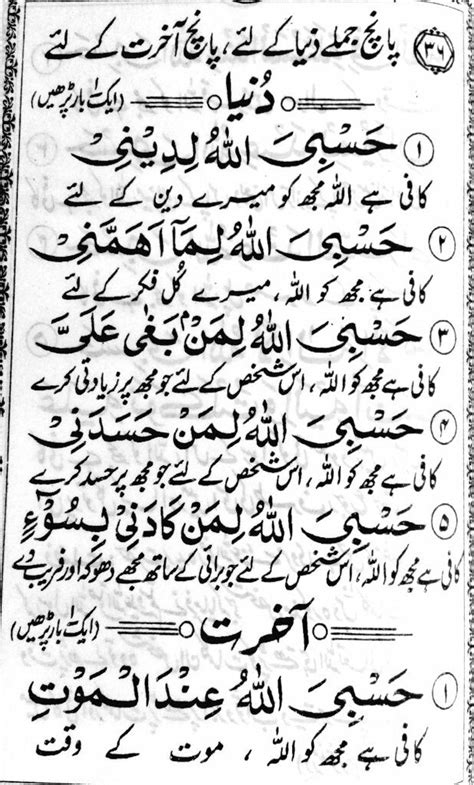 ۳۶ پانچ جملے دُنیا کے لئے، پانچ آخرت کے لئے
دُنیا (ایک بار پڑھیں)
۱ حَسْبِیَ اللّٰهُ لِدِیْنِیْ
کافی ہے اللہ مجھ کو میرے دین کے لئے
۲ حَسْبِیَ اللّٰهُ لِمَآ اَهَمَّنِیْ
کافی ہے مجھ کو اللہ، میرے کُل فکر کے لئے
۳ حَسْبِیَ اللّٰهُ لِمَنْۢ بَغٰی عَلَیَّ
کافی ہے مجھ کو اللہ، اس شخص کے لئے جو مجھ پر زیادتی کرے
۴ حَسْبِیَ اللّٰهُ لِمَنْ حَسَدَنِیْ
کافی ہے مجھ کو اللہ، اس شخص کے لئے جو مجھ پر حسد کرے
۵ حَسْبِیَ اللّٰهُ لِمَنْ كَادَنِیْ بِسُوْٓءٍ
کافی ہے مجھ کو اللہ، اس شخص کے لئے جو برائی کے ساتھ مجھے دھوکہ اور فریب دے
آخرت (ایک بار پڑھیں)
۱ حَسْبِیَ اللّٰهُ عِنْدَ الْمَوْتِ
کافی ہے مجھ کو اللہ، موت کے وقت